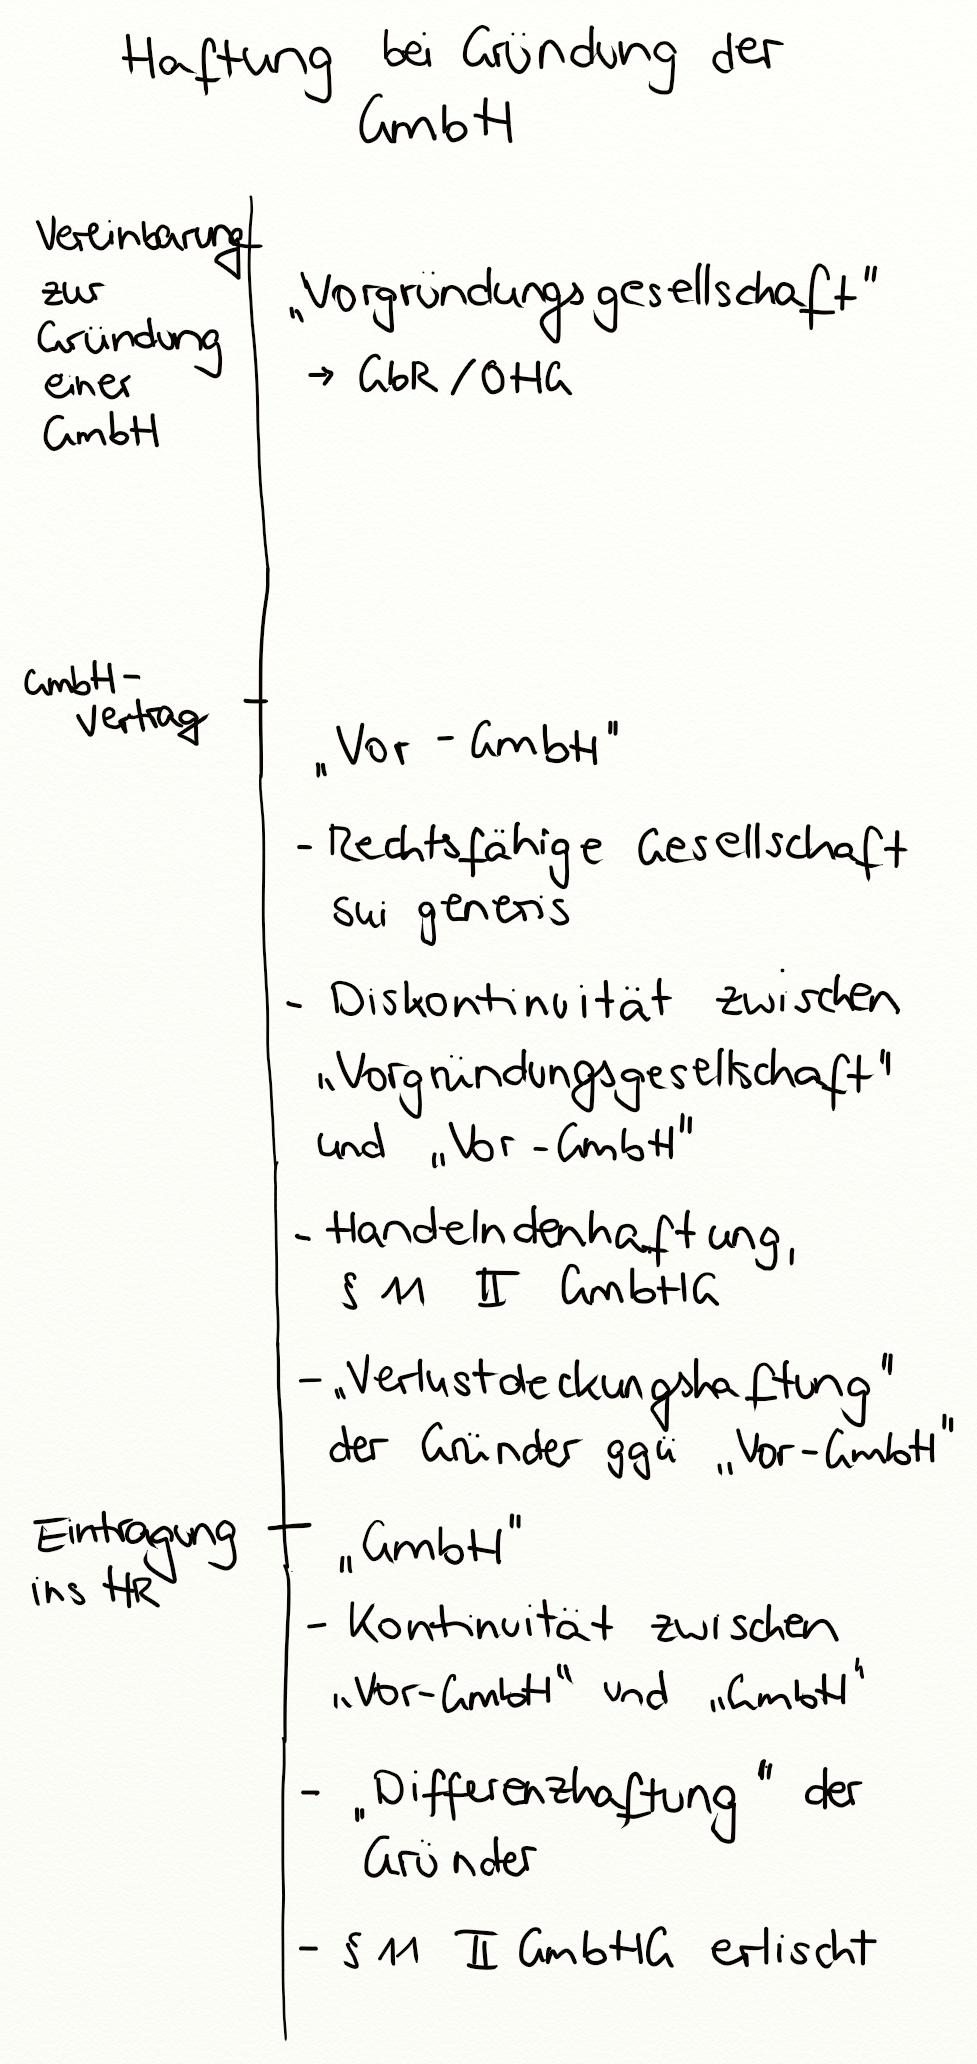 Haftung bei Gründung der
GmbH
Vereinbarung
zur
Gründung
einer
GmbH
„Vorgründungsgesellschaft"
→ GbR / OHG
GmbH-
Vertrag
„Vor - GmbH"
- Rechtsfähige Gesellschaft
sui generis
- Diskontinuität zwischen
„Vorgründungsgesellschaft"
und „Vor - GmbH"
- Handelndenhaftung,
§ 11 II GmbHG
- „Verlustdeckungshaftung"
der Gründer ggü „Vor-GmbH"
Eintragung
ins HR
„GmbH"
- Kontinuität zwischen
„Vor-GmbH" und „GmbH"
- „Differenzhaftung" der
Gründer
- § 11 II GmbHG erlischt